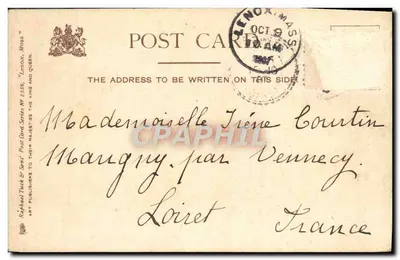 POST CARD
THE ADDRESS TO BE WRITTEN ON THIS SIDE
LENOX, MASS.
OCT 9
Mademoiselle Irène Courtin
Marigny, par Vennecy
Loiret
France
CPAPHIL
Raphael Tuck & Sons' Post Card Series Nº 2356, "Lennox, Mass"
ART PUBLISHERS TO THEIR MAJESTIES THE KING AND QUEEN.